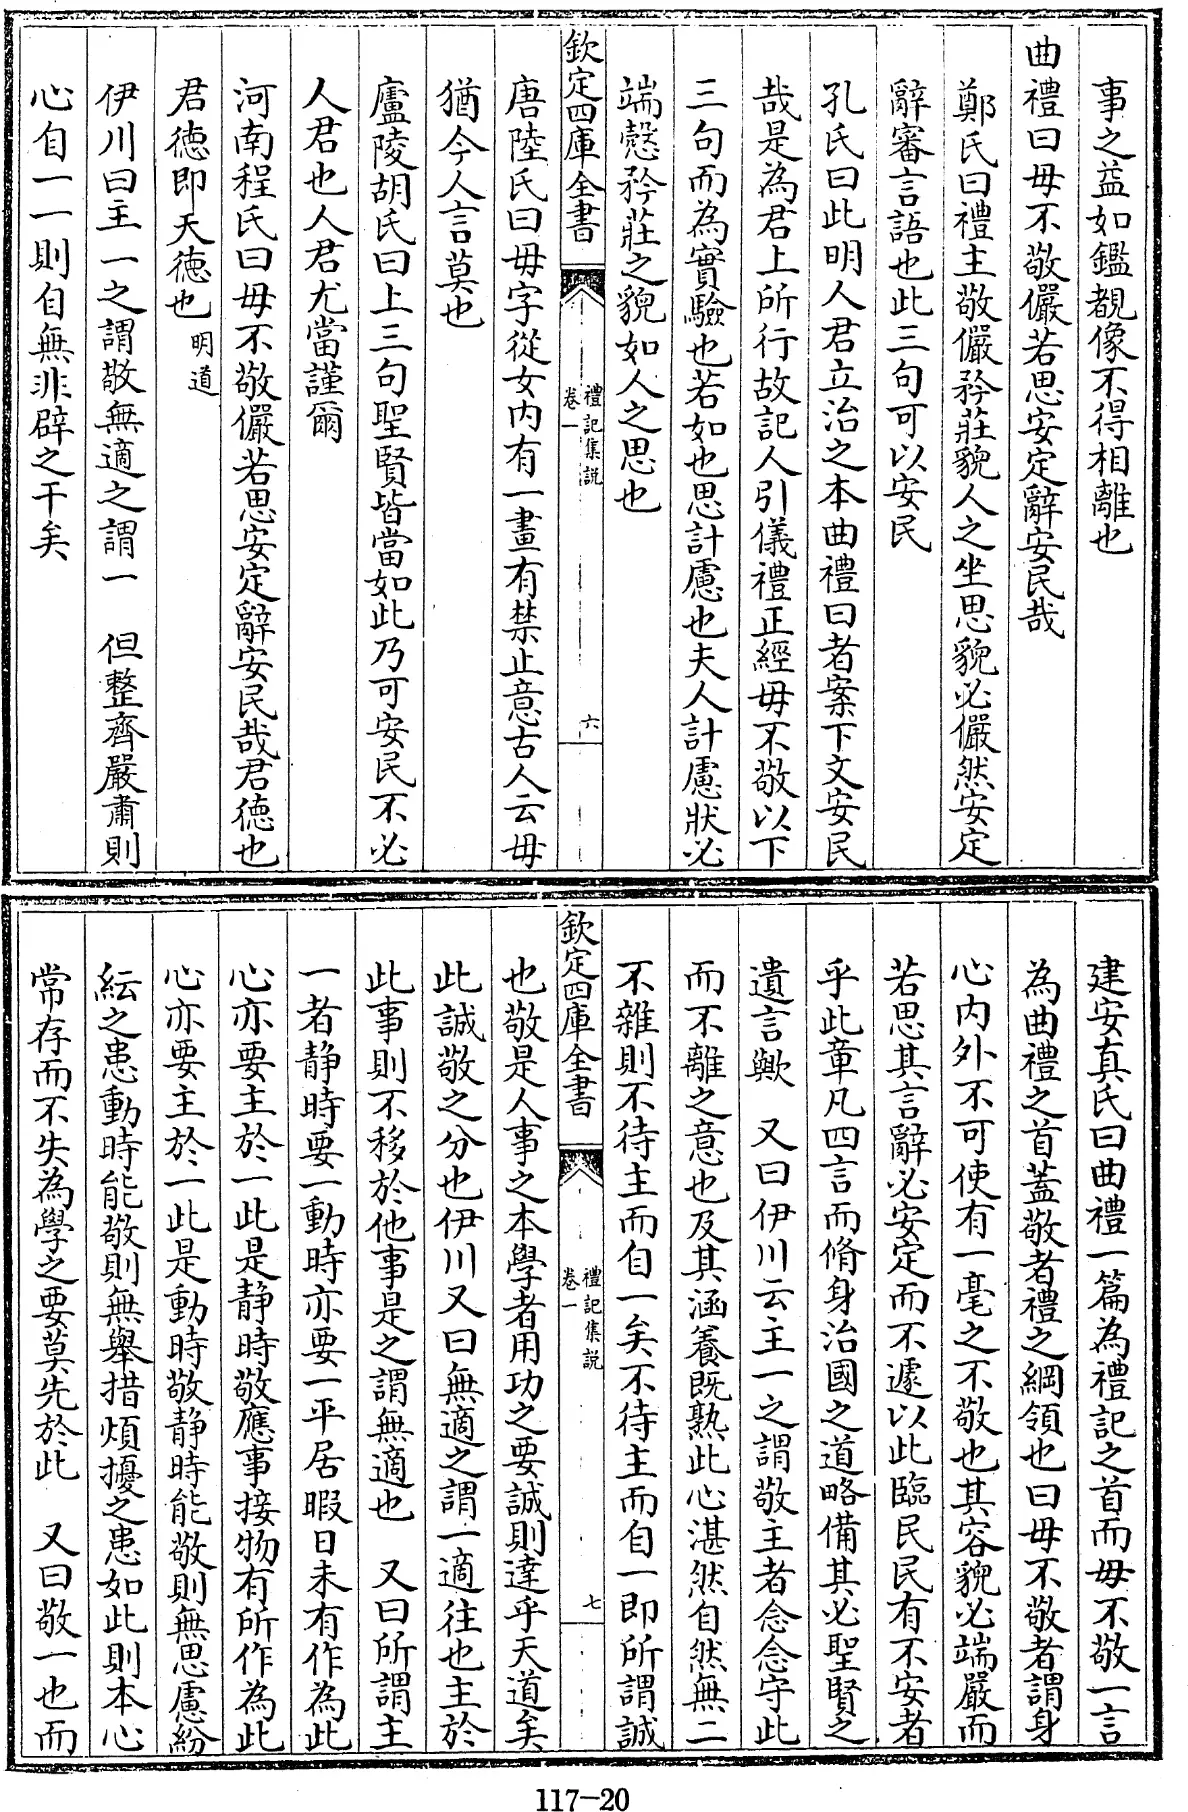 事之益如鑑覩像不得相離也
曲禮曰毋不敬儼若思安定辭安民哉
鄭氏曰禮主敬儼矜莊貌人之坐思貌必儼然安定
辭審言語也此三句可以安民
孔氏曰此明人君立治之本曲禮曰者案下文安民
哉是為君上所行故記人引儀禮正經毋不敬以下
三句而為實驗也若如也思計慮也夫人計慮狀必
端慤矜莊之貌如人之思也
欽定四庫全書
禮記集說
卷一
六
唐陸氏曰毋字從女内有一畫有禁止意古人云毋
猶今人言莫也
廬陵胡氏曰上三句聖賢皆當如此乃可安民不必
人君也人君尤當謹爾
河南程氏曰毋不敬儼若思安定辭安民哉君德也
君德即天德也 明道
伊川曰主一之謂敬無適之謂一 但整齊嚴肅則
心自一一則自無非辟之干矣
建安真氏曰曲禮一篇為禮記之首而毋不敬一言
為曲禮之首蓋敬者禮之綱領也曰毋不敬者謂身
心内外不可使有一毫之不敬也其容貌必端嚴而
若思其言辭必安定而不遽以此臨民民有不安者
乎此章凡四言而脩身治國之道略備其必聖賢之
遺言歟 又曰伊川云主一之謂敬主者念念守此
而不離之意也及其涵養既熟此心湛然自然無二
不雜則不待主而自一矣不待主而自一即所謂誠
欽定四庫全書
禮記集說
卷一
七
也敬是人事之本學者用功之要誠則達乎天道矣
此誠敬之分也伊川又曰無適之謂一適往也主於
此事則不移於他事是之謂無適也 又曰所謂主
一者静時要一動時亦要一平居暇日未有作為此
心亦要主於一此是静時敬應事接物有所作為此
心亦要主於一此是動時敬静時能敬則無思慮紛
紜之患動時能敬則無舉措煩擾之患如此則本心
常存而不失為學之要莫先於此 又曰敬一也而
117-20